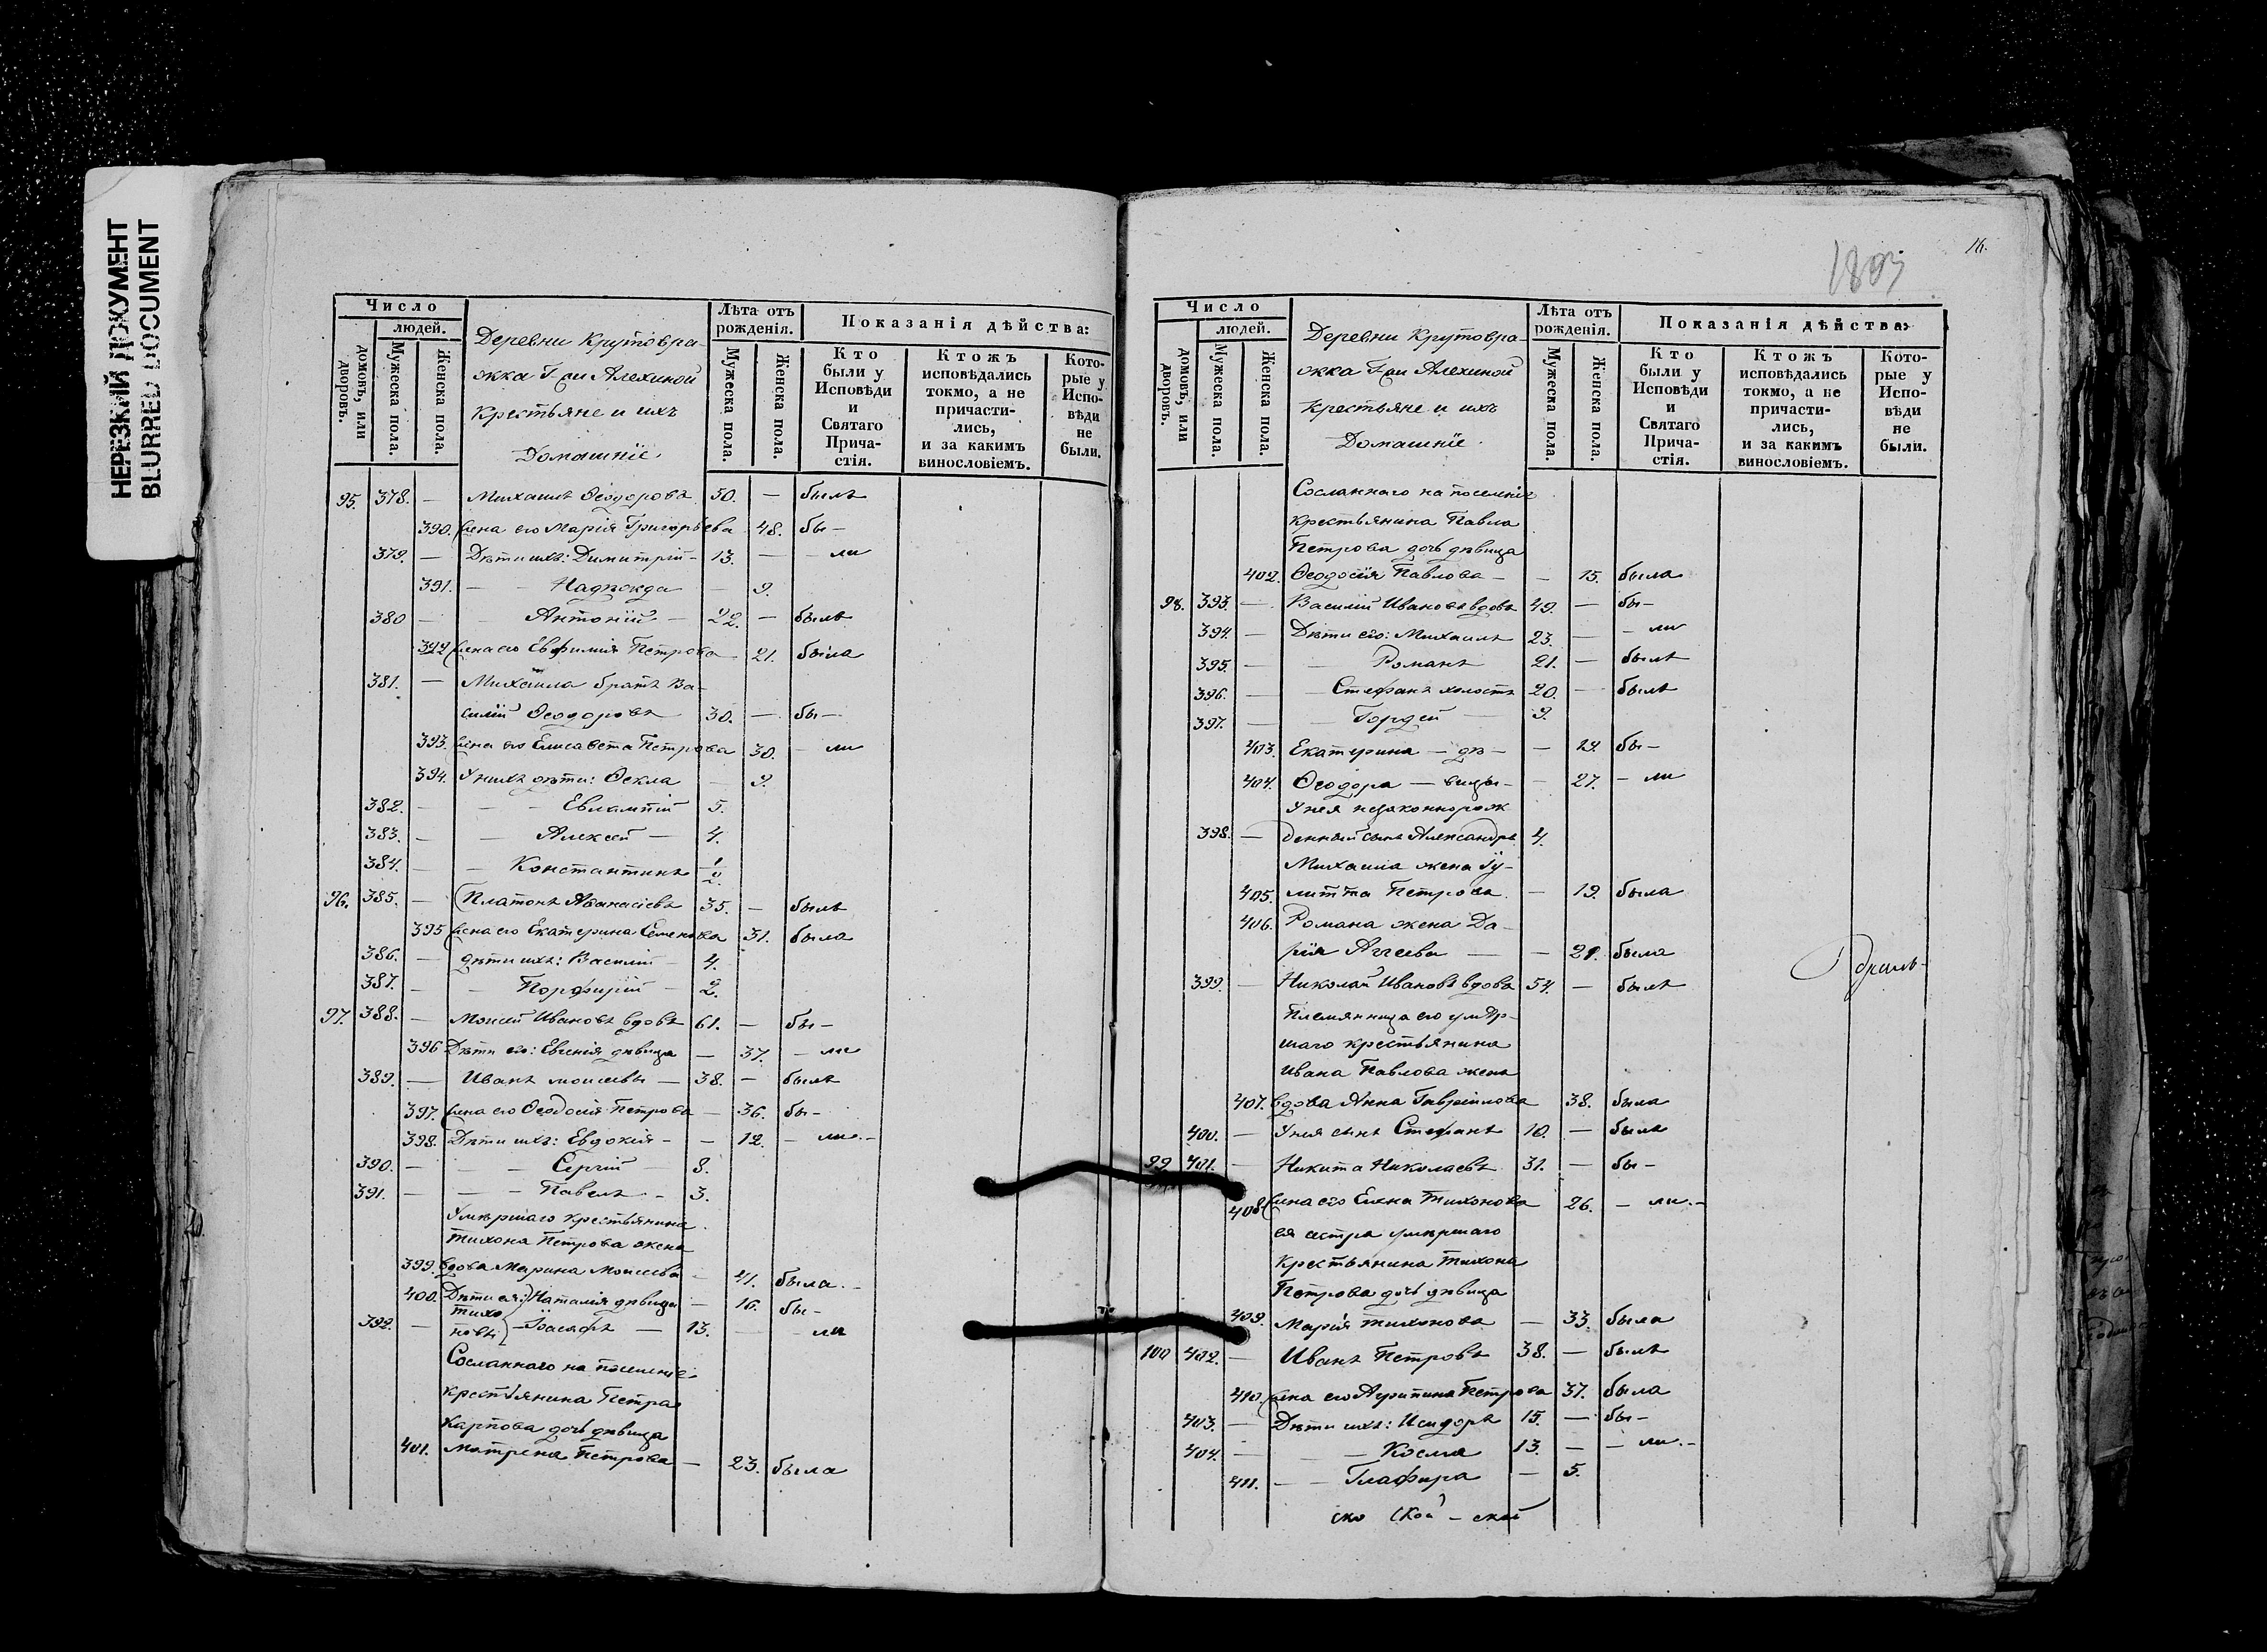 НЕРЕЗКИЙ ДОКУМЕНТ
BLURRED DOCUMENT
Число
людей.
домовъ, или дворовъ.
Мужеска пола.
Женска пола.
Деревни Крутовра-
жка Г-жи Алехиной
Крестьяне и ихъ
Домашніе
Лѣта отъ рожденія.
Мужеска пола.
Женска пола.
Показанія дѣйства:
Кто были у Исповѣди и Святаго Прича-стія.
Ктожъ исповѣдались токмо, а не причасти-лись, и за какимъ винословіемъ.
Кото-рые у Испо-вѣди не были.
95. 378. — Михаилъ Ѳеодоровъ 50. — былъ
390. Жена его Марія Григорьева 48. бы-
379. — Дѣти ихъ: Димитрій - 13. — - ли
391. — — Надѣжда — 9.
380 — — Антоній — 22. — былъ
392 Жена его Евфимія Петрова 21. была
381. — Михаила братъ Ва-
силій Ѳеодоровъ 30. — бы-
393. Жена его Елисавета Петрова 30. - ли
394. У нихъ дѣти: Ѳекла — 9.
382. — — — Евлампій 5.
383. — — Алексѣй — 4.
384. — — Константинъ 1/2.
96. 385. — Платонъ Аѳанасіевъ 35. — былъ
395 Жена его Екатерина Семенова 31. была
386. — дѣти ихъ: Василій — 4.
387. — — Порфирій — 2.
97. 388. — Моисей Ивановъ вдовъ 61. — бы-
396 Дѣти его: Евгенія дѣвица — 37. - ли
389. — Иванъ Моисеевы — 38. — былъ
397. Жена его Ѳеодосія Петрова — 36. бы-
398. Дѣти ихъ: Евдокія - — 12. - ли.-
390. — — — Сергій — 8.
391. — — — Павелъ - 3.
Умершаго крестьянина
Тихона Петрова жена
399. вдова Марина Моисеева - 41. была.-
400. Дѣти ея: Наталія дѣвица — 16. бы-
Тихо
392. — новы - Іоасафъ — 13. — - ли
Сосланнаго на поселеніе
крестьянина Петра
Карпова дочь дѣвица
401. Матрена Петрова — 23. была
1803
16.
Число
людей.
домовъ, или дворовъ.
Мужеска пола.
Женска пола.
Деревни Крутовра-
жка Г-жи Алехиной
Крестьяне и ихъ
Домашніе
Лѣта отъ рожденія.
Мужеска пола.
Женска пола.
Показанія дѣйства:
Кто были у Исповѣди и Святаго Прича-стія.
Ктожъ исповѣдались токмо, а не причасти-лись, и за какимъ винословіемъ.
Кото-рые у Испо-вѣди не были.
Сосланнаго на поселеніе
крестьянина Павла
Петрова дочь дѣвица
402. Ѳеодосія Павлова — — 15. была
98. 393. — Василій Ивановъ вдовъ 49. — бы-
394. — Дѣти его: Михаилъ 23. — - ли
395. — — Романъ 21. — былъ
396. — — Стефанъ холостъ 20. — былъ
397. — — Гордей — 9.
403. Екатерина — дѣ- — бы-
404. Ѳеодора — вицы- — 27. - ли
У нея незаконнорож
398. — денный сынъ Александръ 4.
Михаила жена Іу-
405. литта Петрова — 19. была
406. Романа жена Да-
рія Аггеева — — 21. была
399. — Николай Ивановъ вдовъ 54. — былъ
Племянница его умер-
шаго крестьянина
Ивана Павлова жена
407. вдова Анна Гавріилова 38. была
400. — У нея сынъ Стефанъ 10. — былъ
99 401. — Никита Николаевъ 31. — бы-
408. Жена его Елена Тихонова 26. - ли.-
ея сестра умершаго
крестьянина Тихона
Петрова дочь дѣвица
409. Марія Тихонова — 33. была
100 402. — Иванъ Петровъ 38. — былъ
410. Жена его Агрипина Петрова 37. была
403. — Дѣти ихъ: Исидоръ 15. — бы-
404. — — Косма 13. — - ли.-
411. — — Глафира — 5.